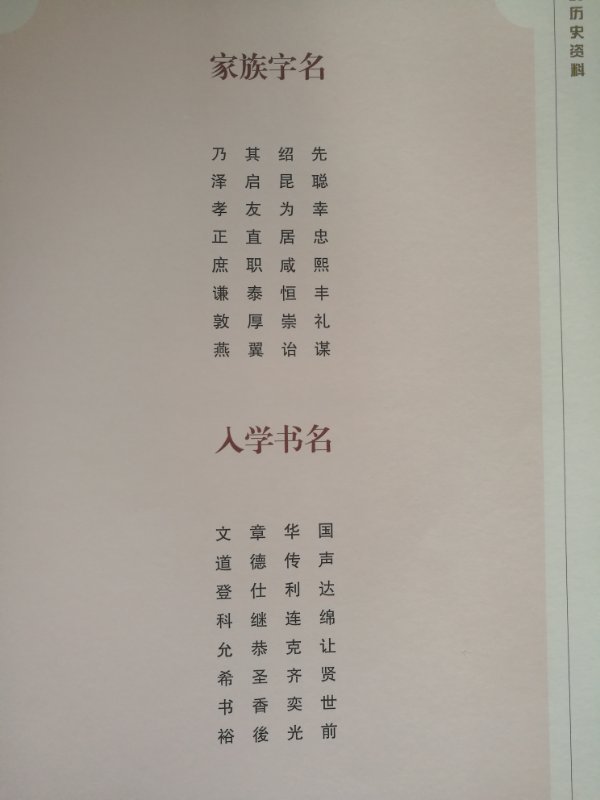 历史资料
家族字名
乃 其 绍 先
泽 启 昆 聪
孝 友 为 幸
正 直 居 忠
庶 职 咸 熙
谦 泰 恒 丰
敦 厚 崇 礼
燕 翼 诒 谋
入学书名
文 章 华 国
道 德 传 声
登 仕 利 达
科 继 连 绵
允 恭 克 让
希 圣 齐 贤
书 香 奕 世
裕 後 光 前